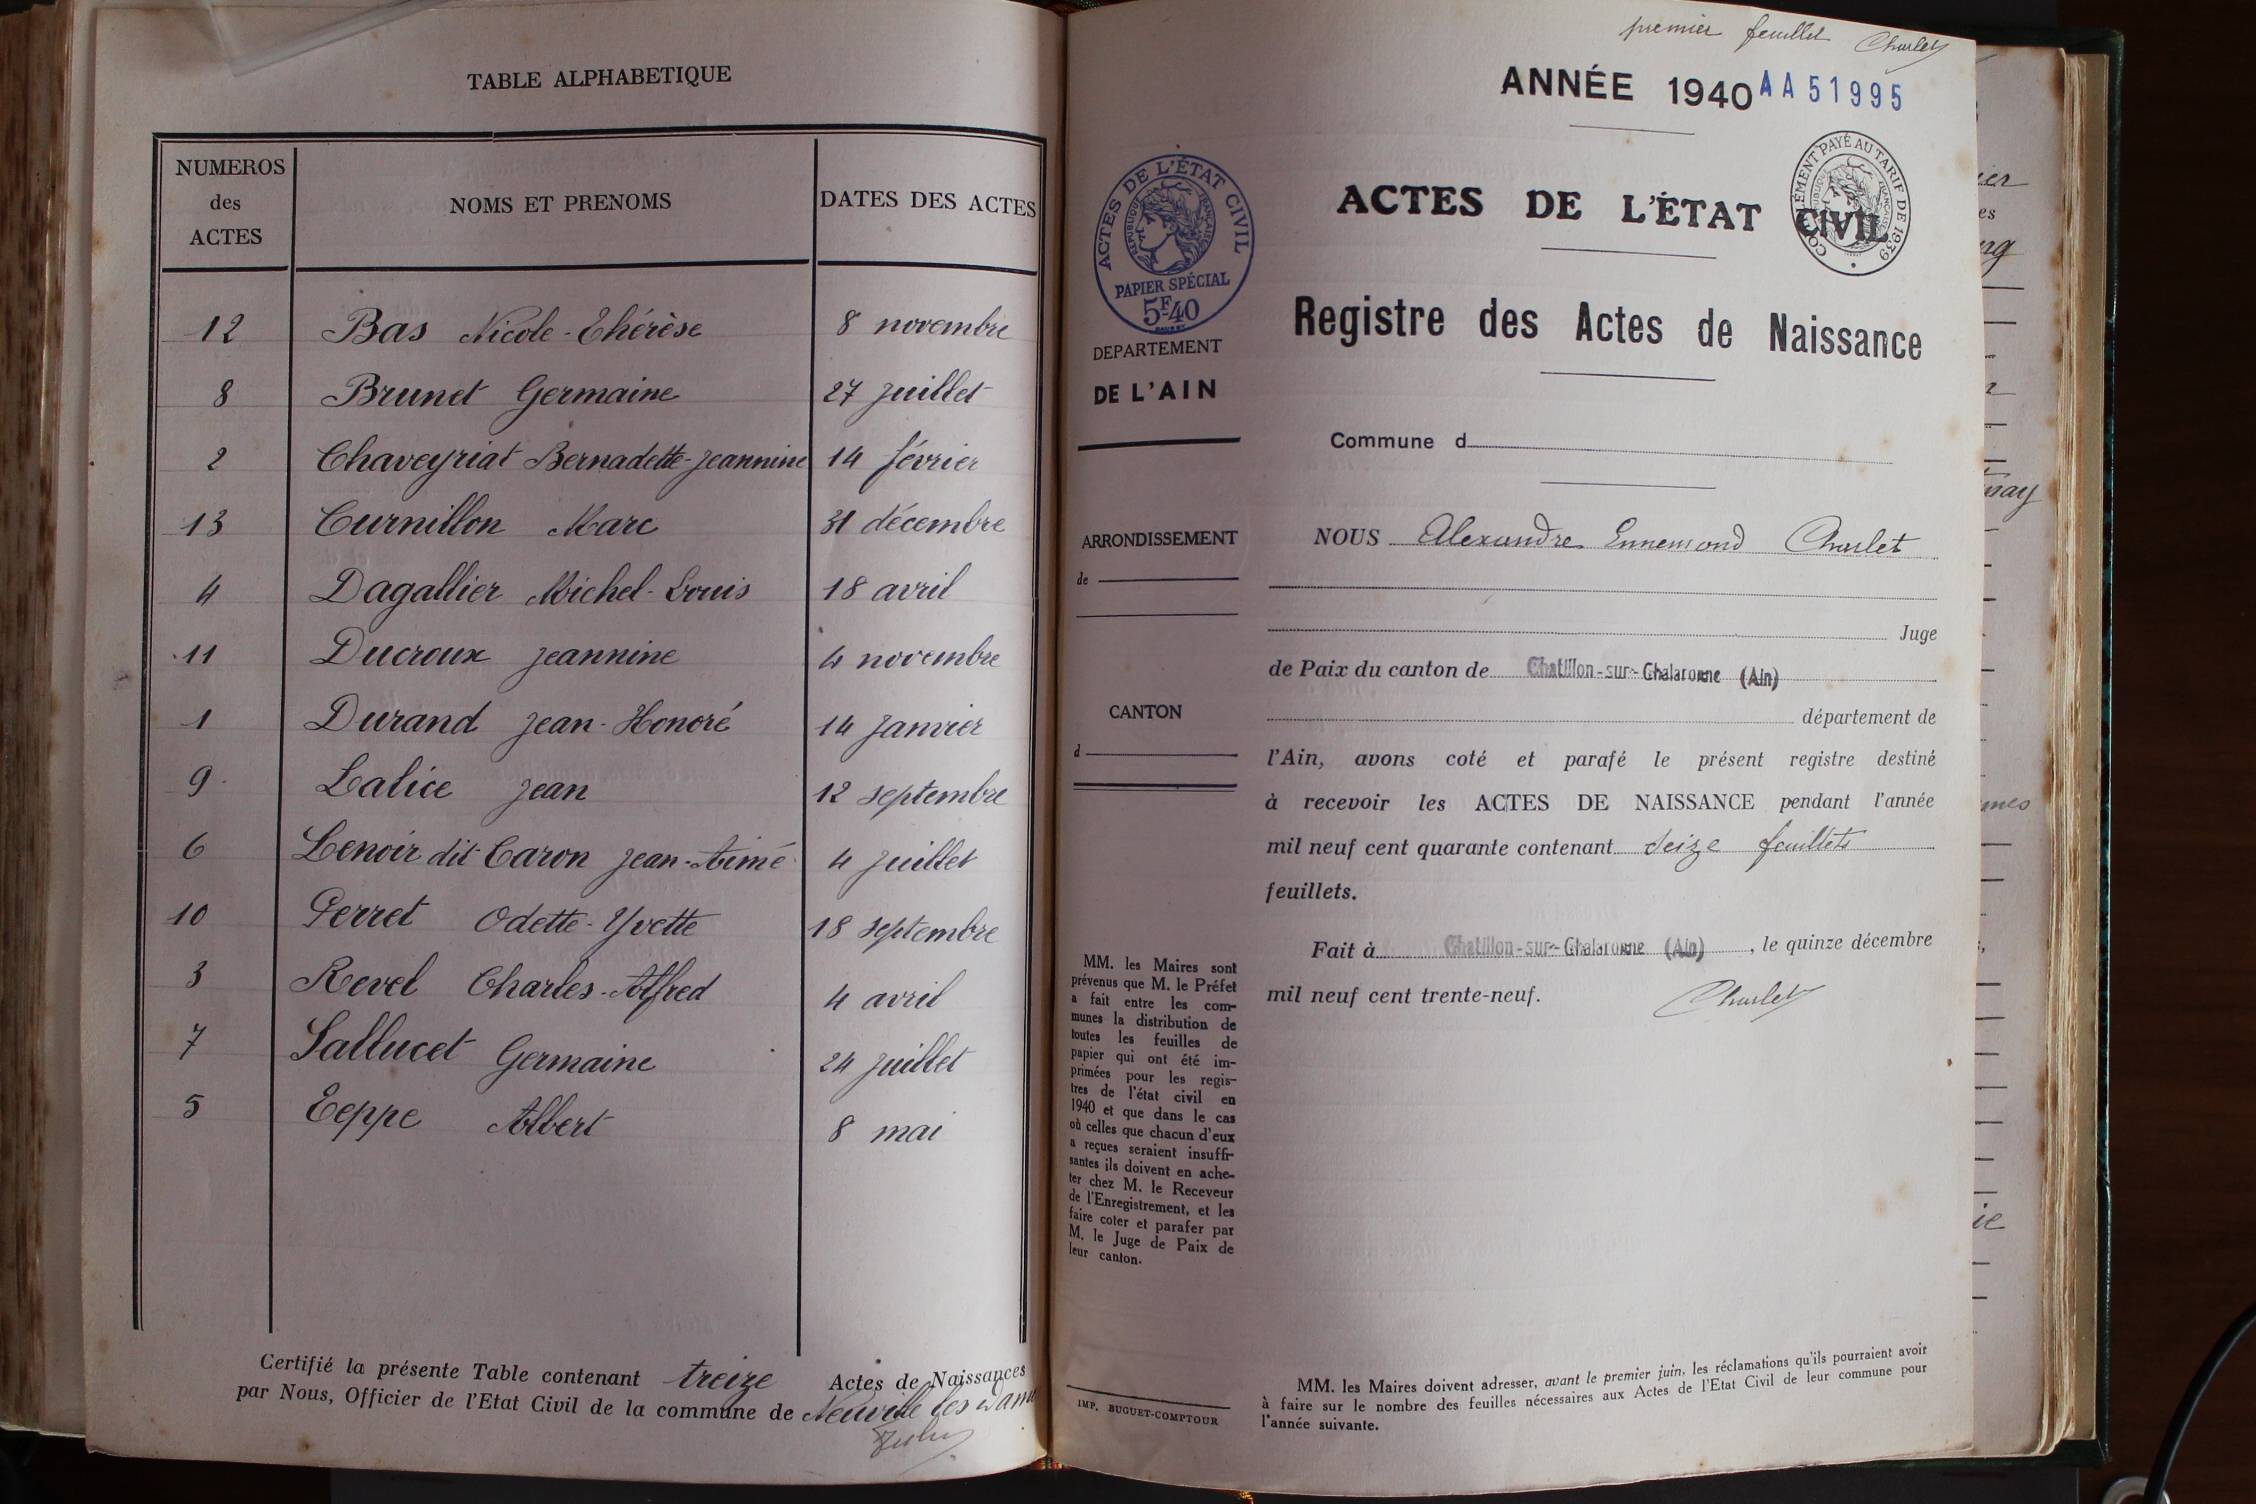 TABLE ALPHABETIQUE
NUMEROS des ACTES
NOMS ET PRENOMS
DATES DES ACTES
12 Bas Nicole-Thérèse 8 novembre
8 Brunet Germaine 27 juillet
2 Chaveyriat Bernadette-Jeannine 14 février
13 Curnillon Marc 31 décembre
4 Dagallier Michel-Louis 18 avril
11 Ducroux Jeannine 4 novembre
1 Durand Jean-Honoré 14 Janvier
9 Lalice Jean 12 septembre
6 Lenoir dit Caron Jean-Aimé 4 Juillet
10 Perret Odette-Yvette 18 septembre
3 Revel Charles-Alfred 4 avril
7 Sallucet Germaine 24 juillet
5 Teppe Albert 8 mai
Certifié la présente Table contenant treize Actes de Naissances
par Nous, Officier de l'Etat Civil de la commune de Neuville les Dames
premier feuillet Charlet
ANNÉE 1940 AA51995
ACTES DE L'ÉTAT CIVIL
RÉPUBLIQUE FRANÇAISE
PAPIER SPÉCIAL
5F40
COMPLÉMENT PAYÉ AU TARIF DE 1939
RÉPUBLIQUE FRANÇAISE
ACTES DE L'ÉTAT CIVIL
Registre des Actes de Naissance
DEPARTEMENT
DE L'AIN
Commune d
ARRONDISSEMENT
de
CANTON
d
NOUS Alexandre Ennemond Charlet
Juge
de Paix du canton de Chatillon-sur-Chalaronne (Ain)
département de
l'Ain, avons coté et parafé le présent registre destiné
à recevoir les ACTES DE NAISSANCE pendant l'année
mil neuf cent quarante contenant seize feuillets
feuillets.
Fait à Chatillon-sur-Chalaronne (Ain), le quinze décembre
mil neuf cent trente-neuf. Charlet
MM. les Maires sont
prévenus que M. le Préfet
a fait entre les com-
munes la distribution de
toutes les feuilles de
papier qui ont été im-
primées pour les regis-
tres de l'état civil en
1940 et que dans le cas
où celles que chacun d'eux
a reçues seraient insuffi-
santes ils doivent en ache-
ter chez M. le Receveur
de l'Enregistrement, et les
faire coter et parafer par
M. le Juge de Paix de
leur canton.
IMP. BUGUET-COMPTOUR
MM. les Maires doivent adresser, avant le premier juin, les réclamations qu'ils pourraient avoir
à faire sur le nombre des feuilles nécessaires aux Actes de l'Etat Civil de leur commune pour
l'année suivante.